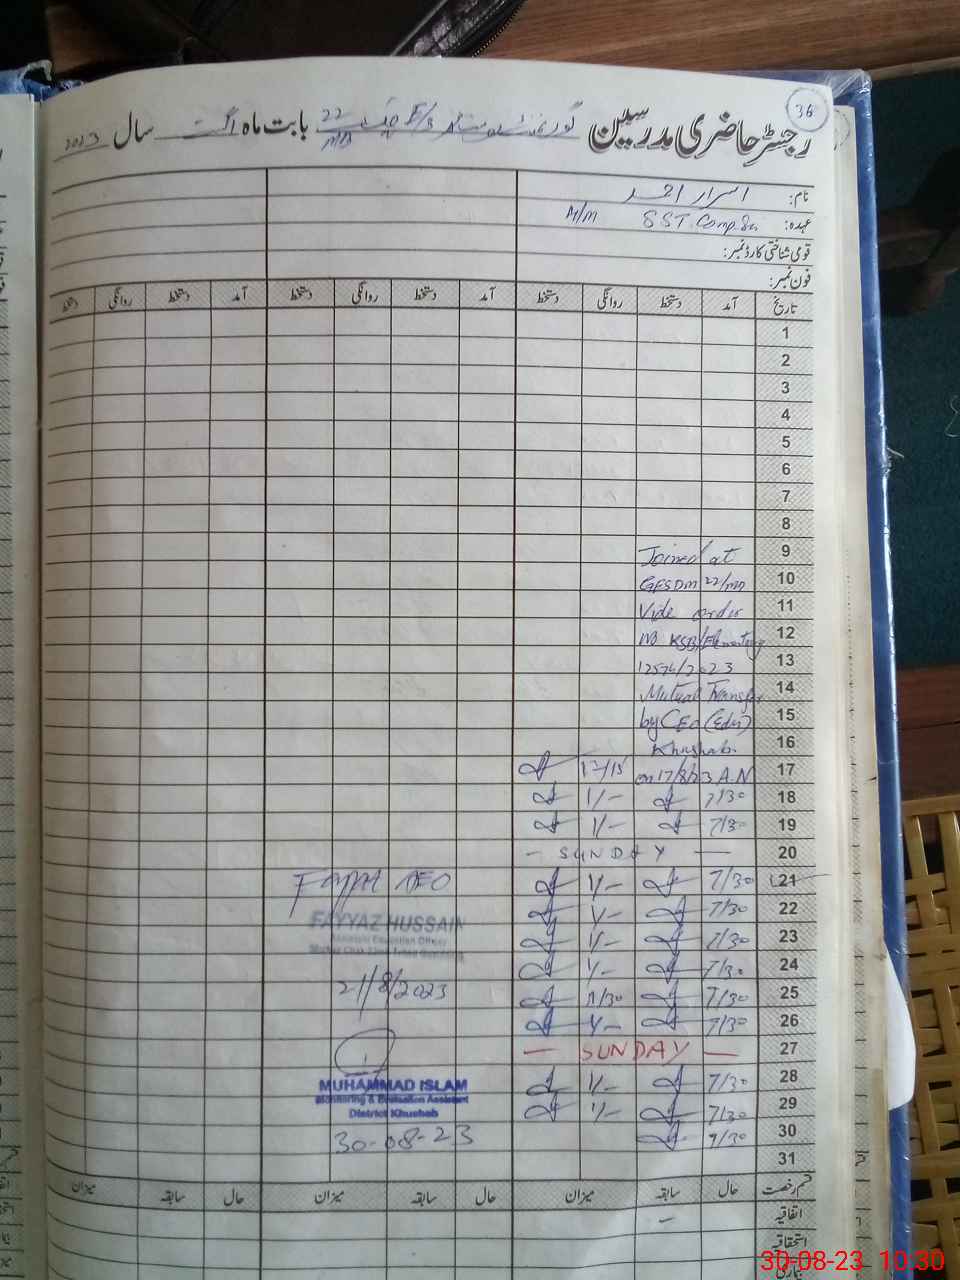 36
رجسٹر حاضری مدرسین گورنمنٹ E/S چک 22 MB بابت ماہ اگست سال 2023
نام: اسرار احمد
عہدہ: SST Comp.Sci M/M
قومی شناختی کارڈ نمبر:
فون نمبر:
تاریخ آمد دستخط روانگی دستخط آمد دستخط روانگی دستخط آمد دستخط روانگی دستخط
1
2
3
4
5
6
7
8
9 Joined at
10 22/MB
11 Vide order
12 NO KSB/Elementary
13 12574/2023
14 Mutual Transfer
15 by CEO (Edu)
16 Khushab
17 on 17/8/23 A.N
18 7/30 1/-
19 7/30 1/-
20 — SUNDAY —
21 7/30 1/-
22 7/30 1/-
23 7/30 1/-
24 7/30 1/-
25 7/30 11/30
26 7/30 1/-
27 — SUNDAY —
28 7/30 1/-
29 7/30 1/-
30 9/30
31
AEO
FAYYAZ HUSSAIN
Assistant Education Officer
21/8/2023
MUHAMMAD ISLAM
Monitoring & Evaluation Assistant
District Khushab
30-08-23
قسم رخصت حال سابقہ میزان حال سابقہ میزان حال سابقہ میزان
اتفاقیہ -
استحقاقیہ
بیماری
30-08-23 10:30